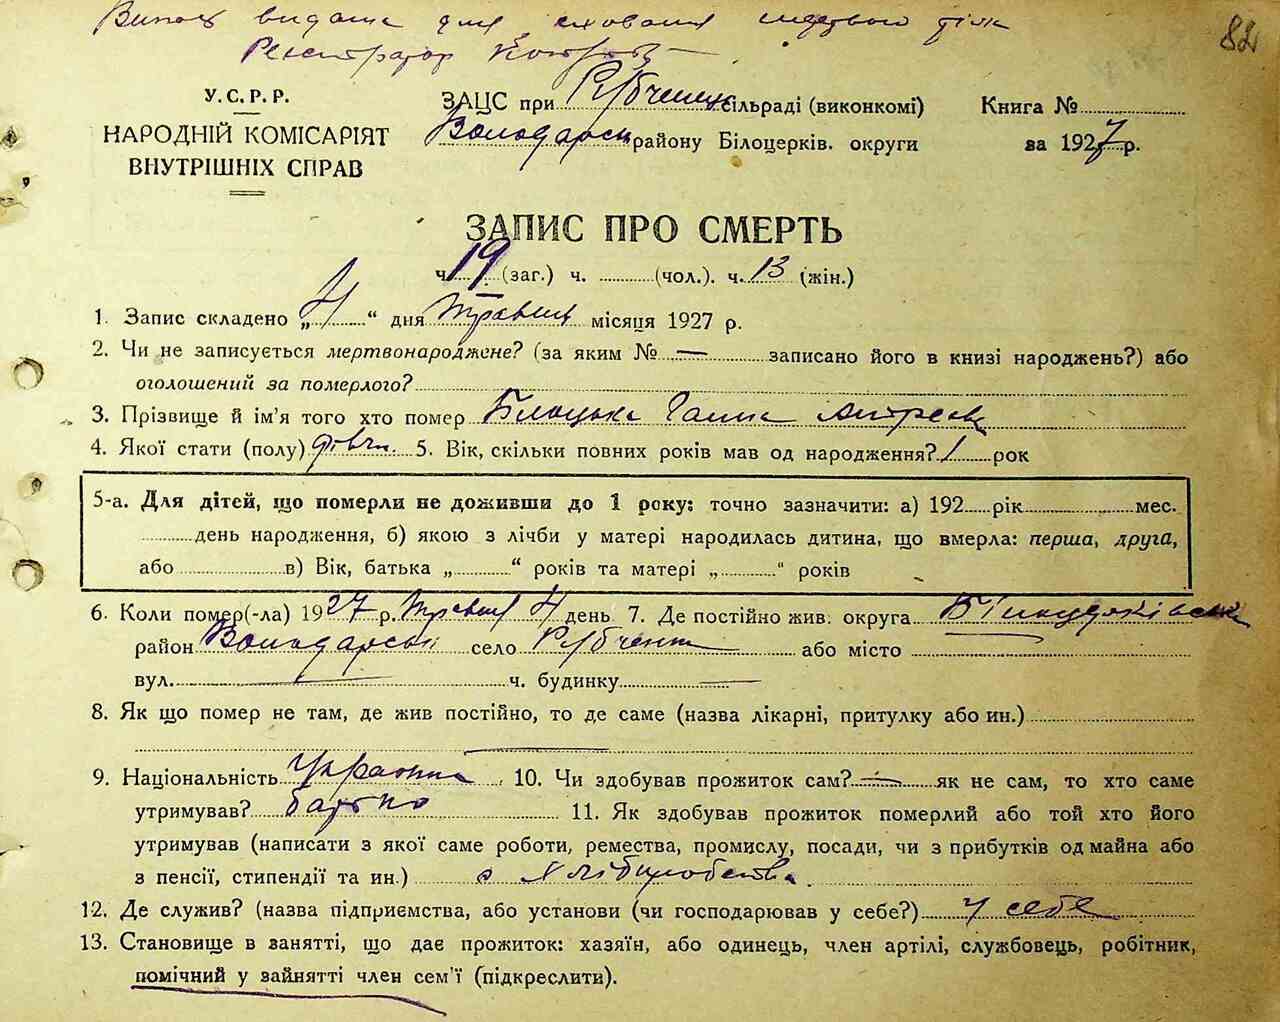 Випись видана для сховання мертвого тіла
Реєстратор
82
У.С.Р.Р.
НАРОДНІЙ КОМІСАРІЯТ
ВНУТРІШНІХ СПРАВ
ЗАЦС при Рубченець сільраді (виконкомі)
Володарськ району Білоцерків. округи
Книга №
за 1927 р.
ЗАПИС ПРО СМЕРТЬ
ч. 19 (заг.) ч. (чол.). ч. 13 (жін.)
1. Запис складено „4“ дня Травня місяця 1927 р.
2. Чи не записується мертвонароджене? (за яким № — записано його в книзі народжень?) або
оголошений за померлого?
3. Прізвище й ім'я того хто помер Білоцька Ганна
4. Якої стати (полу) дівч. 5. Вік, скільки повних років мав од народження? 1 рок
5-а. Для дітей, що померли не доживши до 1 року: точно зазначити: а) 192 рік мес.
день народження, б) якою з лічби у матері народилась дитина, що вмерла: перша, друга,
або в) Вік, батька „ “ років та матері „ “ років
6. Коли помер(-ла) 1927 р. Травня 4 день 7. Де постійно жив. округа Білоцерківськ
район Володарськ село Рубченки або місто
вул. — ч. будинку —
8. Як що помер не там, де жив постійно, то де саме (назва лікарні, притулку або ин.)
9. Національність Україн. 10. Чи здобував прожиток сам? — як не сам, то хто саме
утримував? батько 11. Як здобував прожиток померлий або той хто його
утримував (написати з якої саме роботи, ремества, промислу, посади, чи з прибутків од майна або
з пенсії, стипендії та ин.) з хліборобства
12. Де служив? (назва підприємства, або установи (чи господарював у себе?) у себе
13. Становище в занятті, що дає прожиток: хазяїн, або одинець, член артілі, службовець, робітник,
помічний у зайнятті член сем'ї (підкреслити).